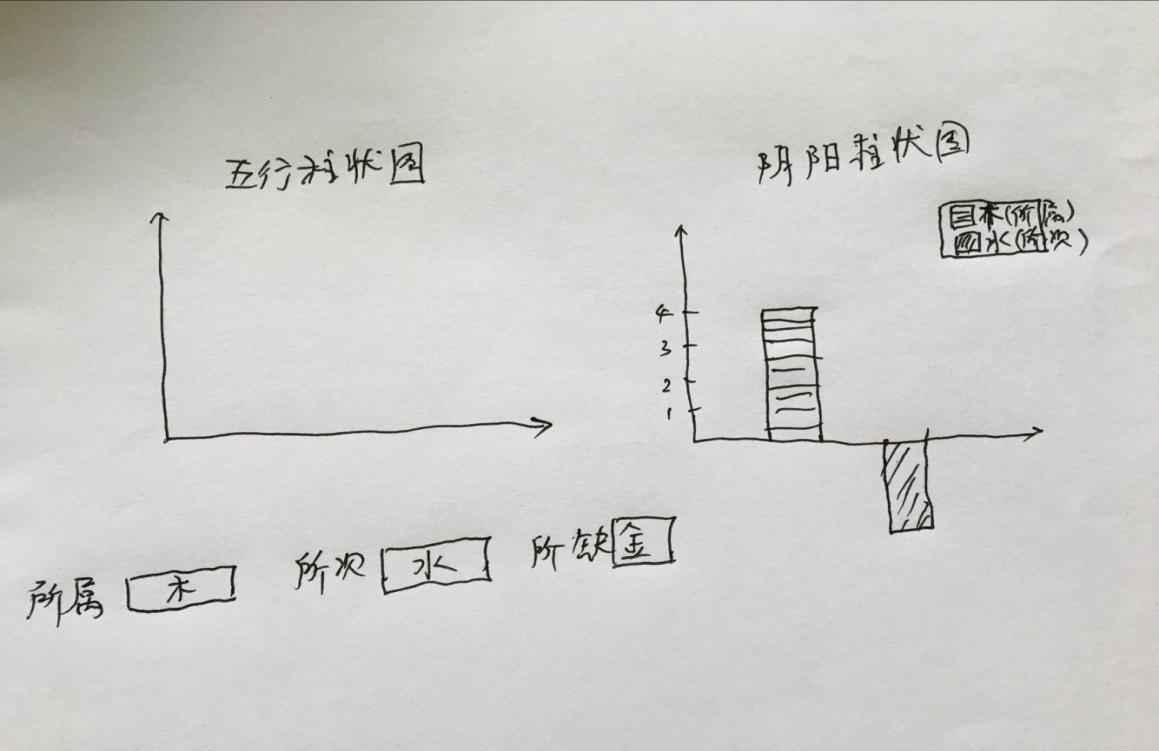 五行柱状图
阴阳柱状图
木(所属)
水(所次)
4
3
2
1
所属 木
所次 水
所缺 金